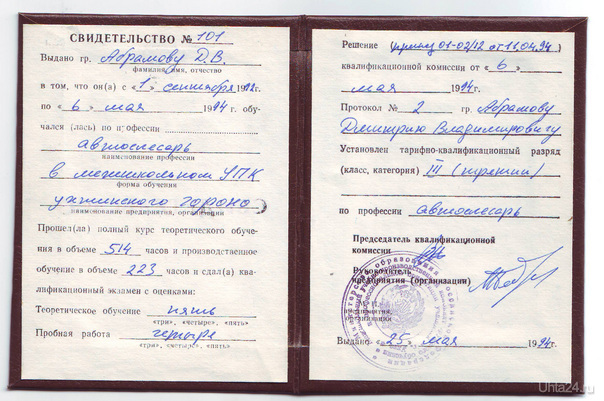 СВИДЕТЕЛЬСТВО № 101
Выдано гр. Абрамову Д.В.
фамилия, имя, отчество
в том, что он(а) с «1» сентября 1992г.
по «6» мая 1994 г. обу-
чался (лась) по профессии
автослесарь
наименование профессии
в межшкольном УПК
форма обучения
ухтинского гороно
наименование предприятия, организации
Прошел(ла) полный курс теоретического обуче-
ния в объеме 514 часов и производственное
обучение в объеме 223 часов и сдал(а) ква-
лификационный экзамен с оценками:
Теоретическое обучение пять
«три», «четыре», «пять»
Пробная работа четыре
«три», «четыре», «пять»
Решение (приказ 01-02/12 от 11.04.94)
квалификационной комиссии от «6»
мая 1994г.
Протокол № 2 гр. Абрамову
Дмитрию Владимировичу
Установлен тарифно-квалификационный разряд
(класс, категория) III (третий)
по профессии автослесарь
Председатель квалификационной
комиссии
Руководитель
предприятия (организации)
Выдано «25» мая 1994г.
Uhta24.ru